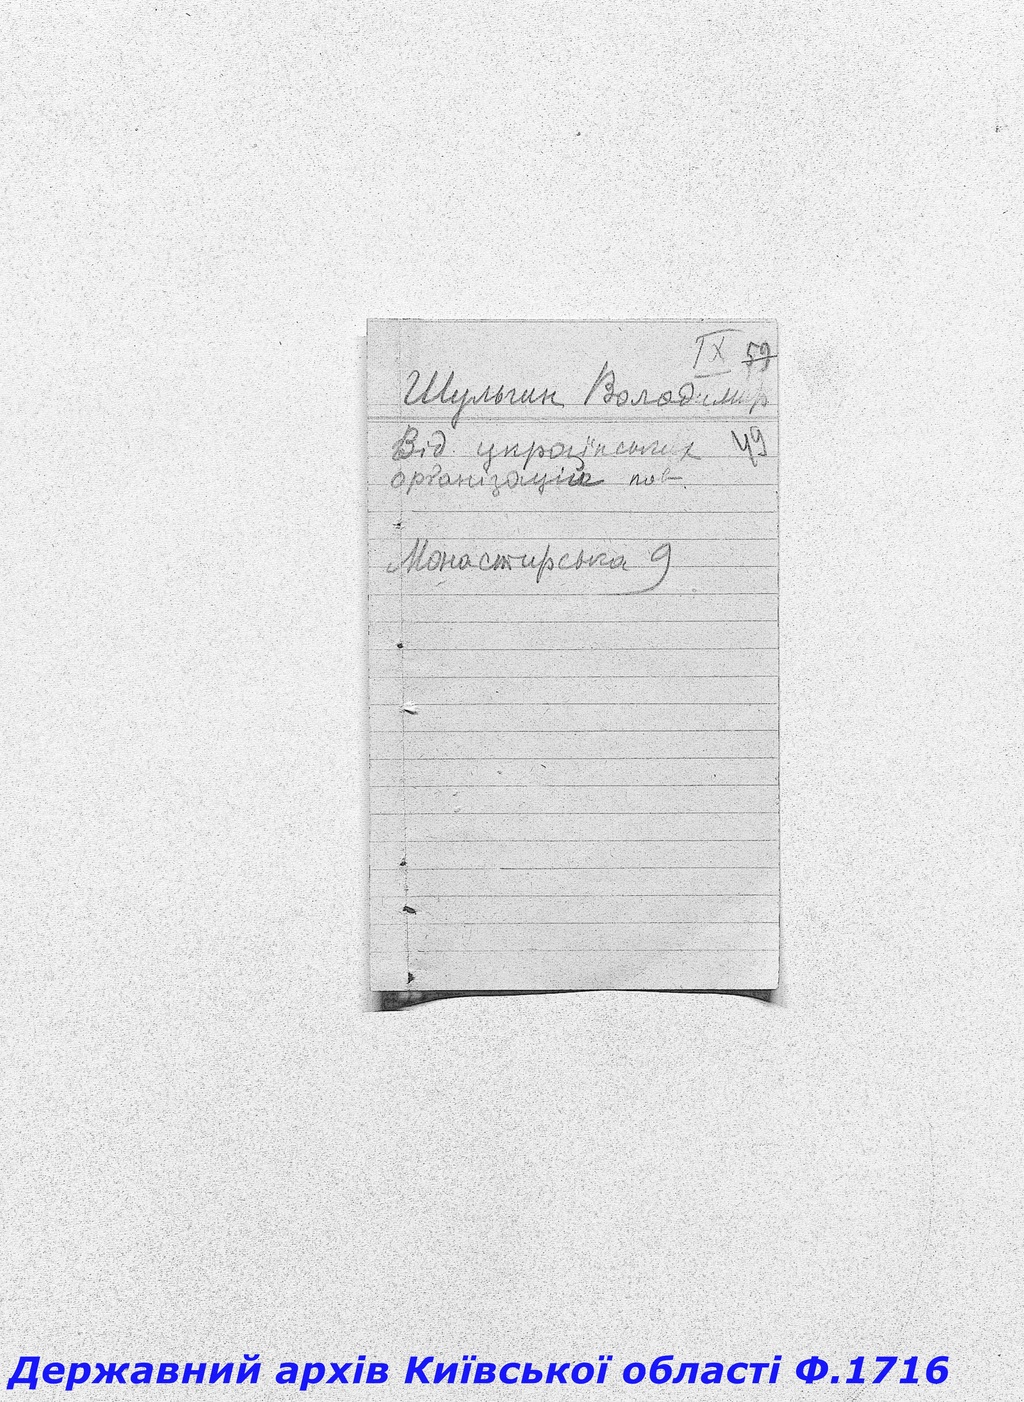 IX 59
Шульгин Володимир
Від українських 49
організацій пов.
Монастирська 9
Державний архів Київської області Ф.1716